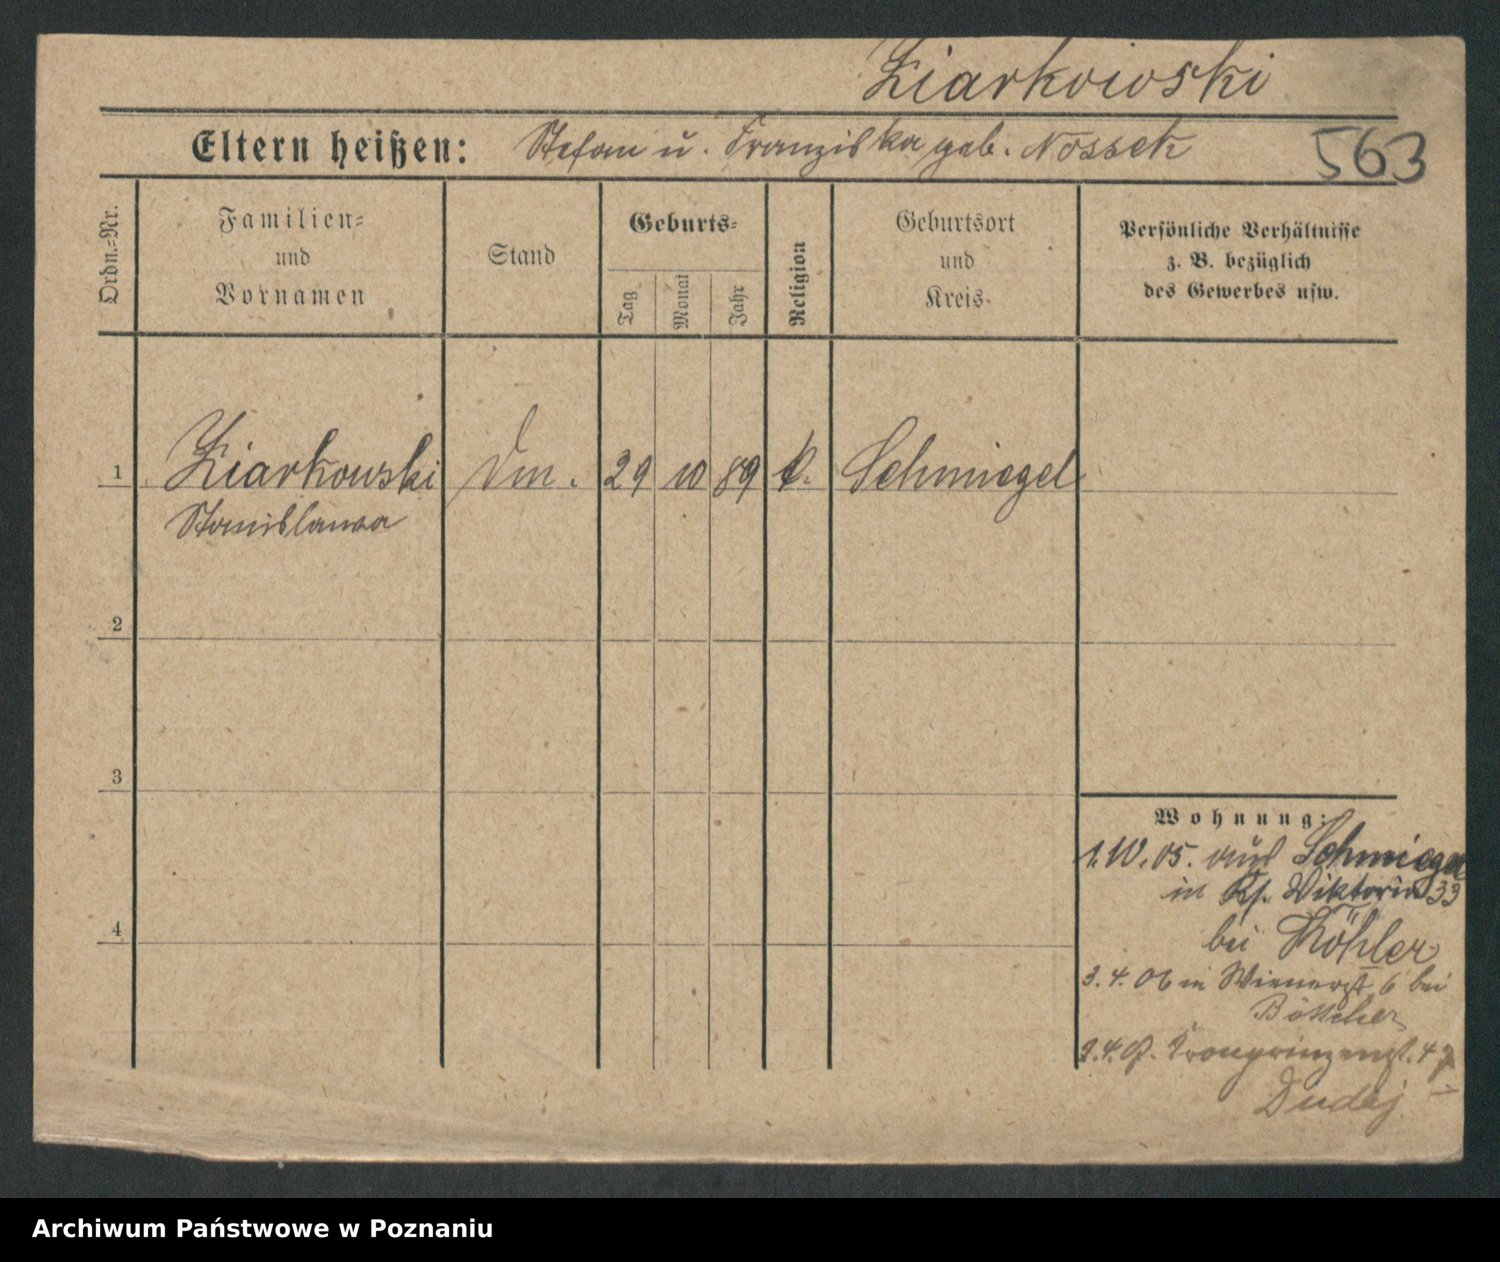 Ziarkowski
Eltern heißen: Stefan u. Franziska geb. Nossek
563
Ordn.-Nr.
Familien- und Vornamen
Stand
Geburts-
Tag
Monat
Jahr
Religion
Geburtsort und Kreis
Persönliche Verhältnisse
z. B. bezüglich
des Gewerbes usw.
1 Ziarkowski Dm. 29 10 89 k. Schmiegel
Stanislawa
2
3
4
Wohnung:
1.10.05. aus Schmiegel
in Ks. Viktoria 33
bei Köhler
3.4.06 in Wienerst 6 bei
Böttcher
Kronprinzenst. 47
Dudaj
Archiwum Państwowe w Poznaniu